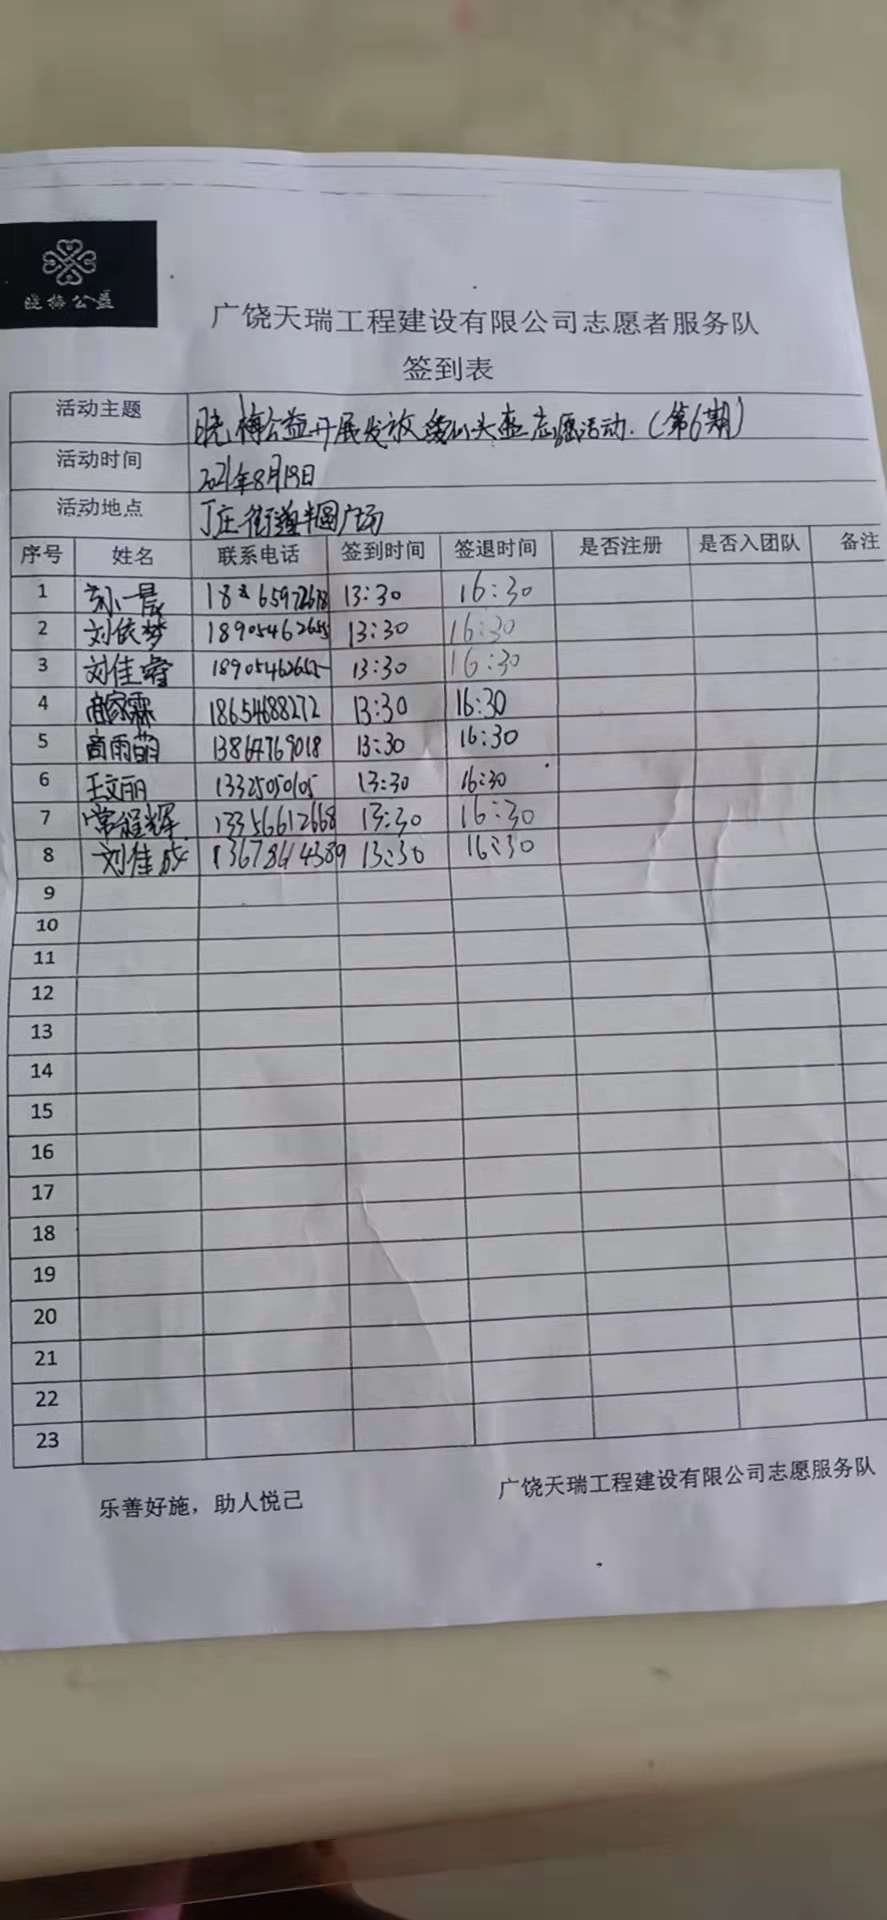 晓梅公益
广饶天瑞工程建设有限公司志愿者服务队
签到表
活动主题 晓梅公益开展发放 头盔志愿活动.（第6期）
活动时间 2021年8月19日
活动地点 丁庄街道半圆广场
序号 姓名 联系电话 签到时间 签退时间 是否注册 是否入团队 备注
1 孙一晨 13:30 16:30
2 刘依梦 18905462655 13:30 16:30
3 刘佳睿 18905462655 13:30 16:30
4 商家霖 18654688272 13:30 16:30
5 商雨萌 13864769018 13:30 16:30
6 王文丽 13325050105 13:30 16:30
7 常程辉 13356612668 13:30 16:30
8 刘佳成 13678614389 13:30 16:30
9
10
11
12
13
14
15
16
17
18
19
20
21
22
23
乐善好施，助人悦己 广饶天瑞工程建设有限公司志愿服务队